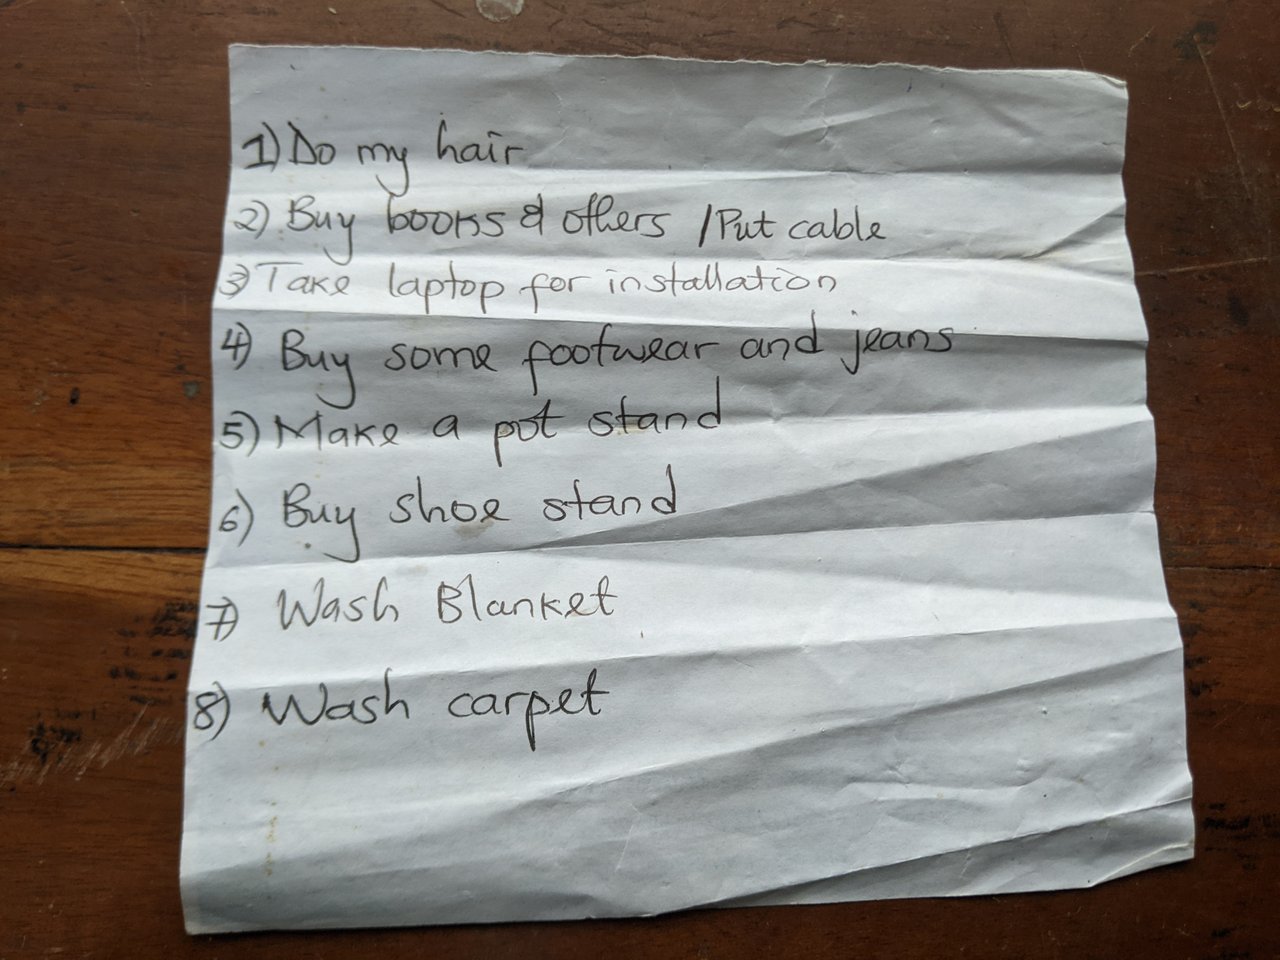 1) Do my hair
2) Buy books & others /Put cable
3) Take laptop for installation
4) Buy some footwear and jeans
5) Make a pot stand
6) Buy shoe stand
7) Wash Blanket
8) Wash carpet